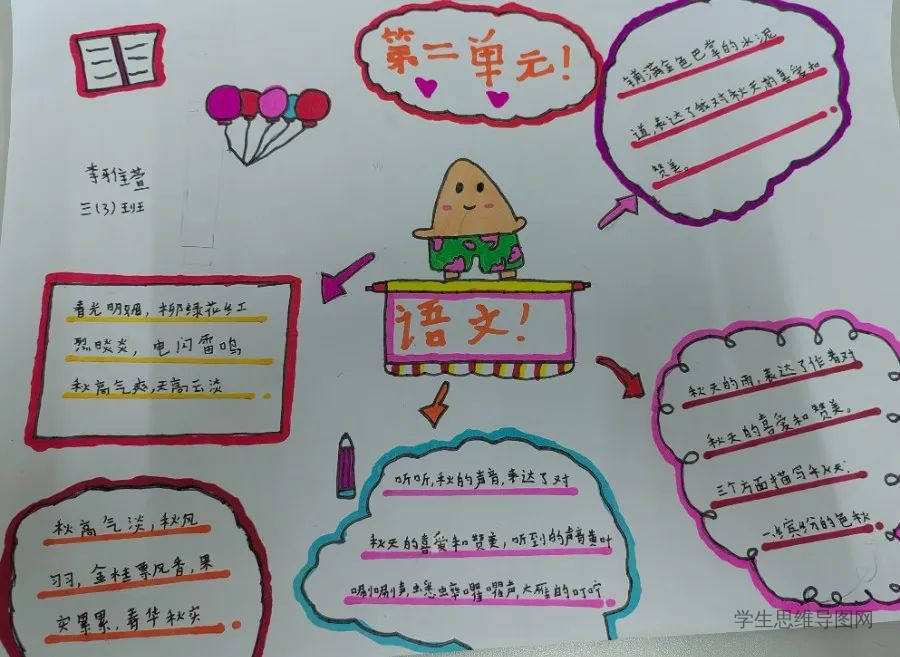 第二单元!
铺满金色巴掌的水泥
道,表达了我对秋天的喜爱和
赞美。
李雅萱
三(3)班
语文!
春光明媚,柳绿花红
烈日炎炎,电闪雷鸣
秋高气爽,天高云淡
秋天的雨,表达了作者对
秋天的喜爱和赞美。
三个方面描写
缤纷的色
听听,秋的声音,表达了对
秋天的喜爱和赞美,听到的声音黄叶
唰唰声,蟋蟀㘗㘗声,大雁的叮咛
秋高气淡,秋风
习习,金桂飘香,果
实累累,春华秋实
学生思维导图网